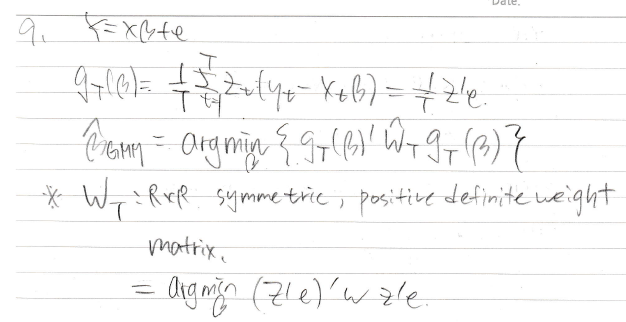 Date.
9. Y = Xβ + e
g_T(β) = 1/T Σ_{t=1}^{T} Z_t (y_t - X_t β) = 1/T Z'e.
β̂_GMM = argmin_β { g_T(β)' Ŵ_T g_T(β) }
※ W_T : R×R symmetric, positive definite weight
matrix.
= argmin_β (Z'e)' W Z'e.